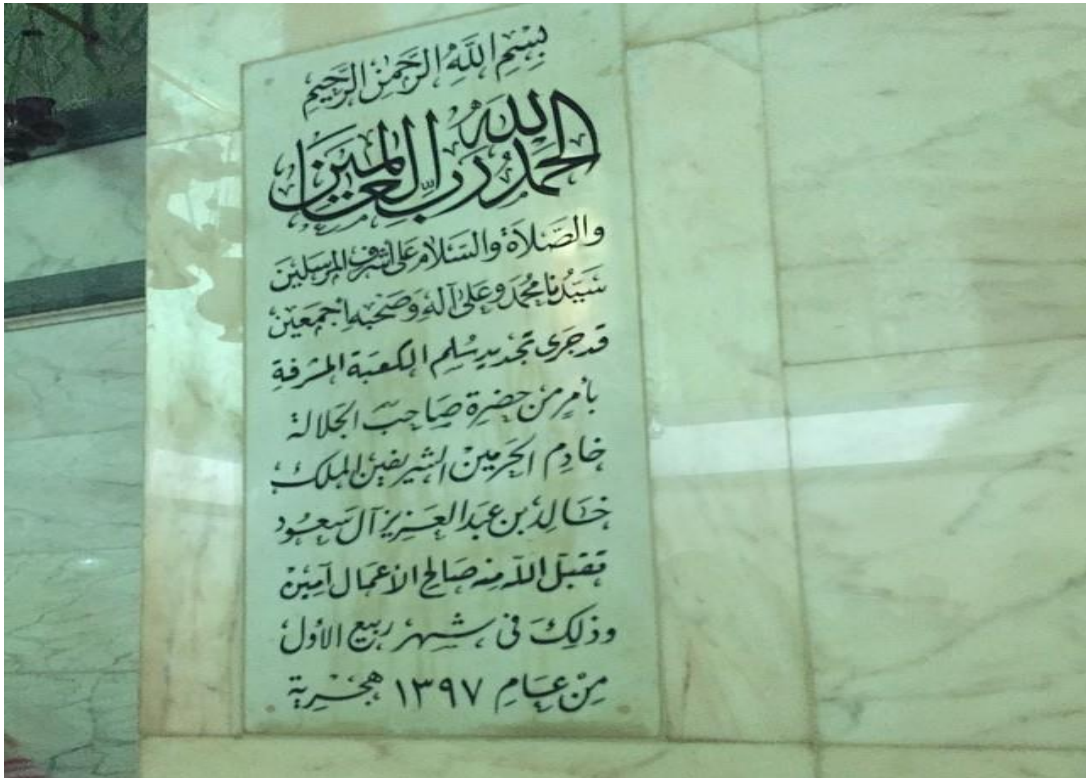 بِسْمِ اللَّهِ الرَّحْمٰنِ الرَّحِيْمِ
الحَمْدُ لِلَّهِ رَبِّ العَالَمِيْنَ
والصَّلاَة والسَّلام عَلى أشرف المرسَلينَ
سَيِّدُنا محمد وعَلى آله وَصَحْبه أجمَعين
قد جَرى تجديد سُلم الكعبَة المشرفةِ
بأمر من حضرة صَاحبْ الجَلالة
خادم الحَرمين الشريفين الملك
خَالد بن عَبد العَزيز آل سَعُود
تقبل اللّه منه صَالح الأعمال آمين
وذلك فى شهر ربيع الأول
مِنْ عَام ١٣٩٧ هجْرية